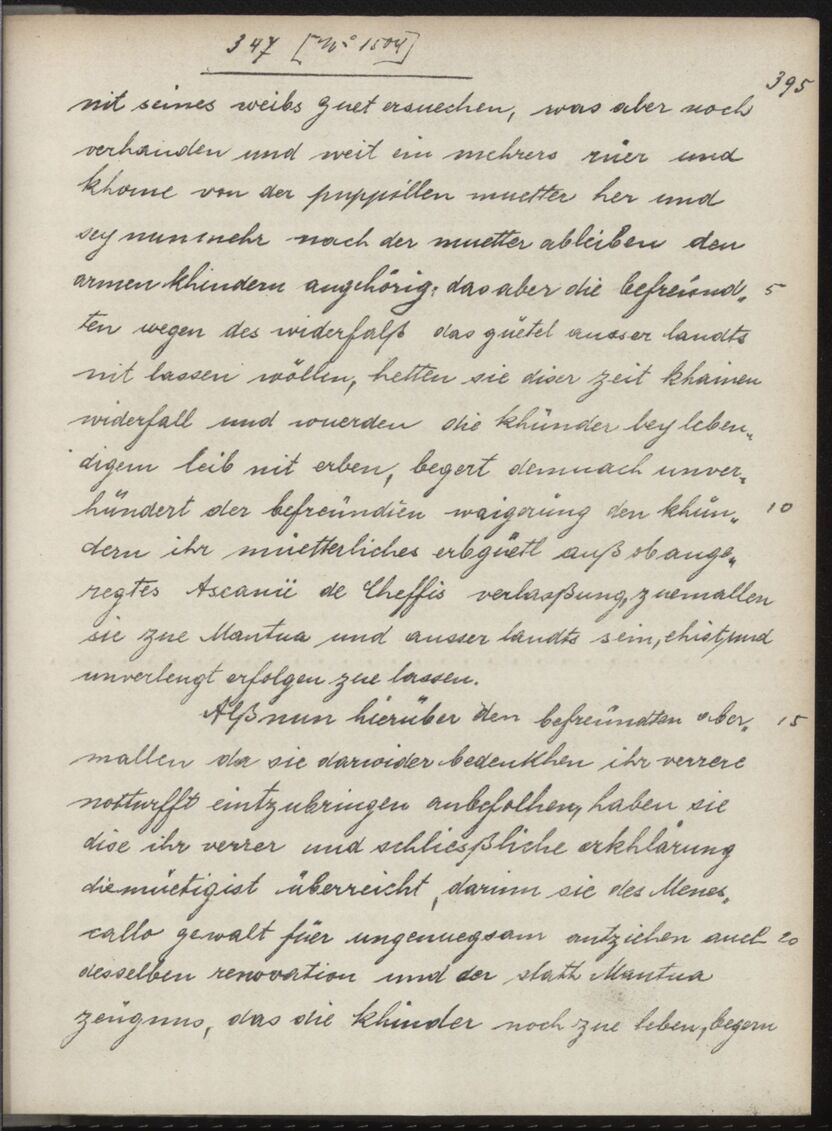 347 [No 1504]
395
nit seines weibs guet ersuechen, was aber noch
verhanden und weit ein mehrers rüer und
khome von der puppillen muetter her und
sey nunmehr nach der muetter ableiben den
armen khindern angehörig, das aber die befreünd„ 5
ten wegen des widerfalß das güetel ausser landts
nit lassen wöllen, hetten sie diser zeit khainen
widerfall und wuerden die khünder bey leben„
digem leib nit erben, begert demnach unver„
hündert der befreündten waigerüng den khün„ 10
dern ihr müetterliches erbgüetl auß ob ange„
regtes Ascanii de Cheffis verlaßung, zuemallen
sie zue Mantua und ausser landts sein, ehist und
unverlengt erfolgen zue lassen.
Alß nun hierüber den befreündten aber„ 15
mallen da sie darwider bedenkhen ihr verrere
notturfft eintzubringen anbefolhen, haben sie
dise ihr verrer und schließliche erkhlärung
diemüetigist überreicht, darinn sie des Menes„
callo gewalt füer ungenuegsam antziehen auch 20
desselben renovation und der statt Mantua
zeügnus, das die khinder noch zue leben, begern